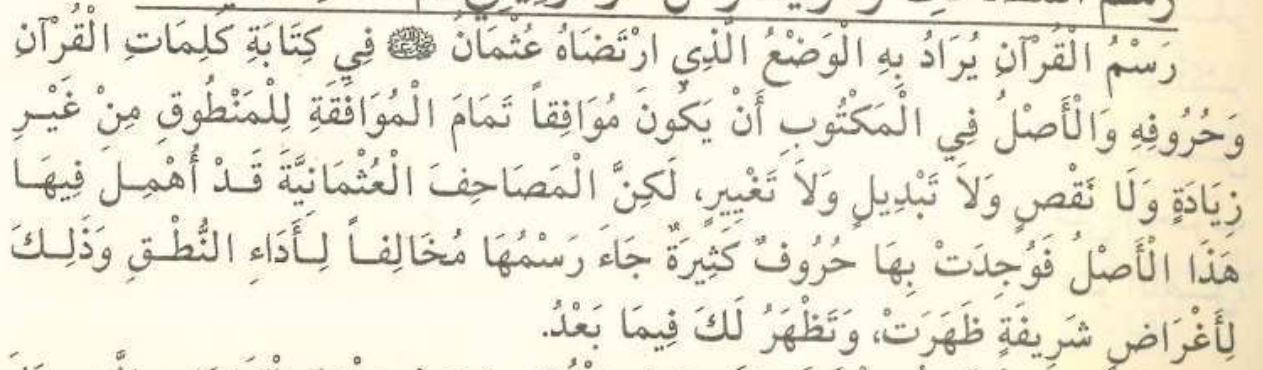 رَسْمُ الْقُرْآنِ يُرَادُ بِهِ الْوَضْعُ الَّذِي ارْتَضَاهُ عُثْمَانُ ﷺ فِي كِتَابَةِ كَلِمَاتِ الْقُرْآنِ
وَحُرُوفِهِ وَالْأَصْلُ فِي الْمَكْتُوبِ أَنْ يَكُونَ مُوَافِقاً تَمَامَ الْمُوَافَقَةِ لِلْمَنْطُوقِ مِنْ غَيْرِ
زِيَادَةٍ وَلَا نَقْصٍ وَلاَ تَبْدِيلٍ وَلاَ تَغْيِيرٍ، لَكِنَّ الْمَصَاحِفَ الْعُثْمَانِيَّةَ قَدْ أُهْمِلَ فِيهَا
هَذَا الْأَصْلُ فَوُجِدَتْ بِهَا حُرُوفٌ كَثِيرَةٌ جَاءَ رَسْمُهَا مُخَالِفاً لِأَدَاءِ النُّطْقِ وَذَلِكَ
لِأَغْرَاضٍ شَرِيفَةٍ ظَهَرَتْ، وَتَظْهَرُ لَكَ فِيمَا بَعْدُ.